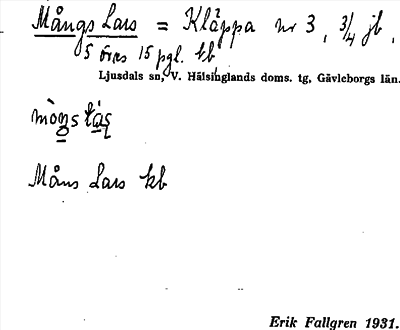 Mångs Lars = Kläppa nr 3, 3/4 jb,
5 öres 15 pgl. kb
Ljusdals sn, V. Hälsinglands doms. tg, Gävleborgs län.
Måns Lars kb
Erik Fallgren 1931.